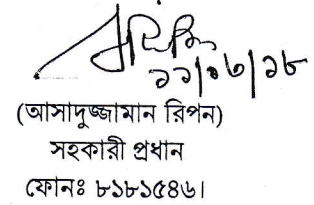 (আসাদুজ্জামান রিপন)
সহকারী প্রধান
ফোনঃ ৮১৮১৫৪৬।